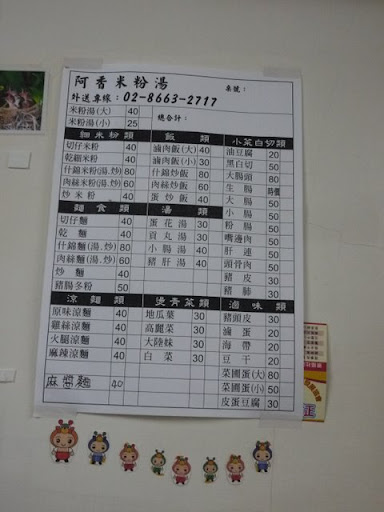 阿香米粉湯
桌號：
外送專線：02-8663-2717
米粉湯(大) 40
米粉湯(小) 25
總合計：
細米粉類
切仔米粉 40
乾細米粉 40
什錦米粉(湯.炒) 80
肉絲米粉(湯.炒) 60
炒米粉 40
麵食類
切仔麵 40
乾麵 40
什錦麵(湯.炒) 80
肉絲麵(湯.炒) 60
炒麵 40
豬腸冬粉 50
涼麵類
原味涼麵 40
雞絲涼麵 40
火腿涼麵 40
麻辣涼麵 40
麻醬麵 40
飯類
滷肉飯(大) 40
滷肉飯(小) 30
什錦炒飯 80
肉絲炒飯 60
蛋炒飯 40
湯類
蛋花湯 30
貢丸湯 30
小腸湯 40
豬肝湯 40
燙青菜類
地瓜葉 30
高麗菜 30
大陸妹 30
白菜 30
小菜白切類
油豆腐 20
黑白切 50
大腸頭 80
生腸 時價
大腸 50
小腸 50
粉腸 50
嘴邊肉 50
肝連 50
頭骨肉 50
豬皮 30
豬肺 30
滷味類
豬頭皮 30
滷蛋 20
海帶 20
豆干 20
菜圃蛋(大) 80
菜圃蛋(小) 50
皮蛋豆腐 30